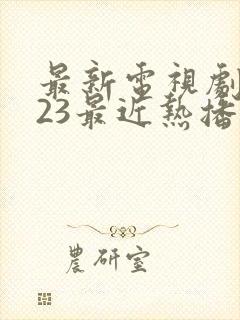 最新電視劇
23最近熱播
農研室